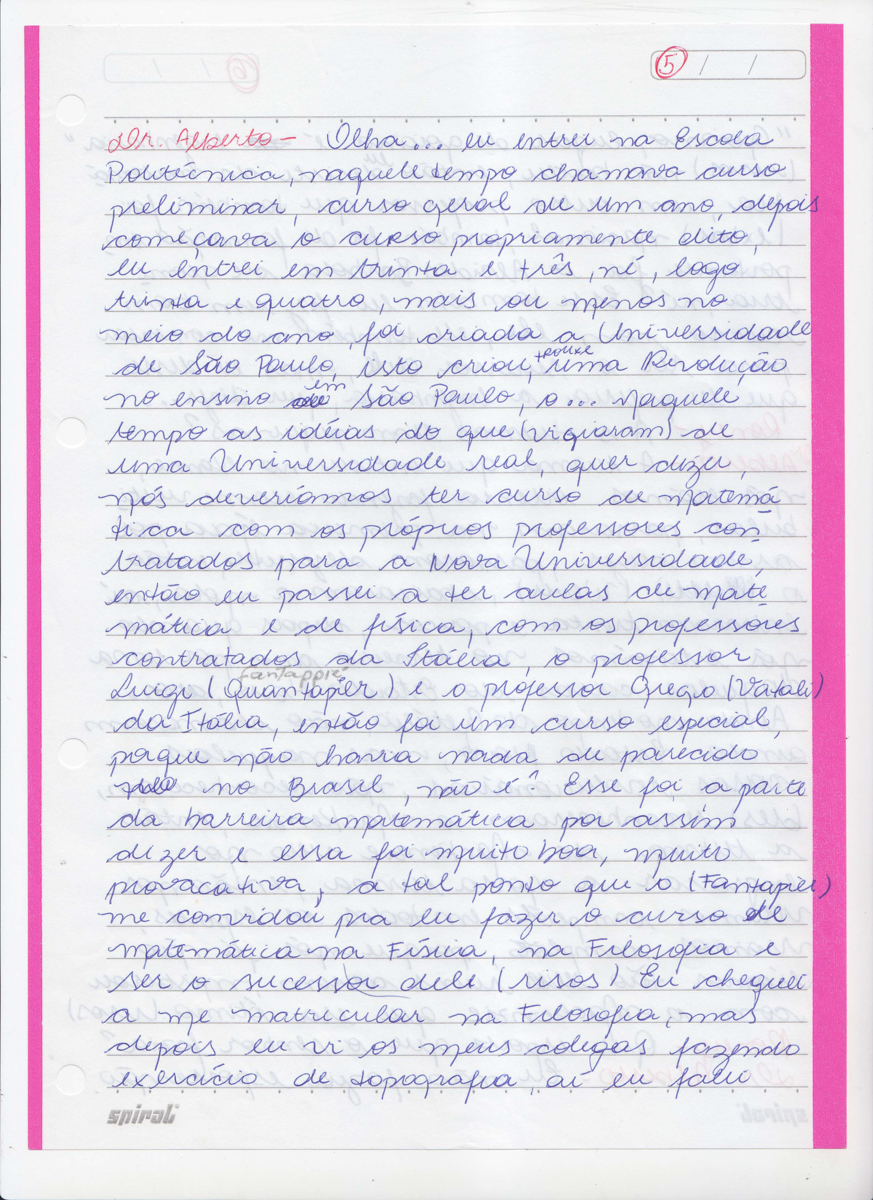 5 / /
Dr. Alberto - Olha... eu entrei na Escola
Politécnica, naquele tempo chamava curso
preliminar, curso geral de um ano, depois
começava o curso propriamente dito,
eu entrei em trinta e três, né, logo
trinta e quatro, mais ou menos no
meio do ano, foi criada a Universidade
de São Paulo, isto criou, trouxe uma Revolução
no ensino em São Paulo, o... Naquele
tempo as idéias do que (vigiaram) de
uma Universidade real, quer dizer,
nós deveríamos ter curso de matemá
tica com os própios professores con
tratados para a Nova Universidade,
então eu passei a ter aulas de mate
mática e de física, com os professores
contratados da Itália, o professor
fantappiés
Luigi (Quantapier) e o professor Gregio (Vatali)
da Itália, então foi um curso especial,
porque não havia nada de parecido
no Brasil, não é? Esse foi a parte
da barreira matemática por assim
dizer e essa foi muito boa, muito
provacativa, a tal ponto que o (Fantapier)
me convidou pra eu fazer o curso de
matemática na Física, na Filosofia e
ser o sucessor dele (risos) Eu cheguei
a me matricular na Filosofia, mas
depois eu vi os meus colegas fazendo
exercício de topografia, aí eu falo
spiral